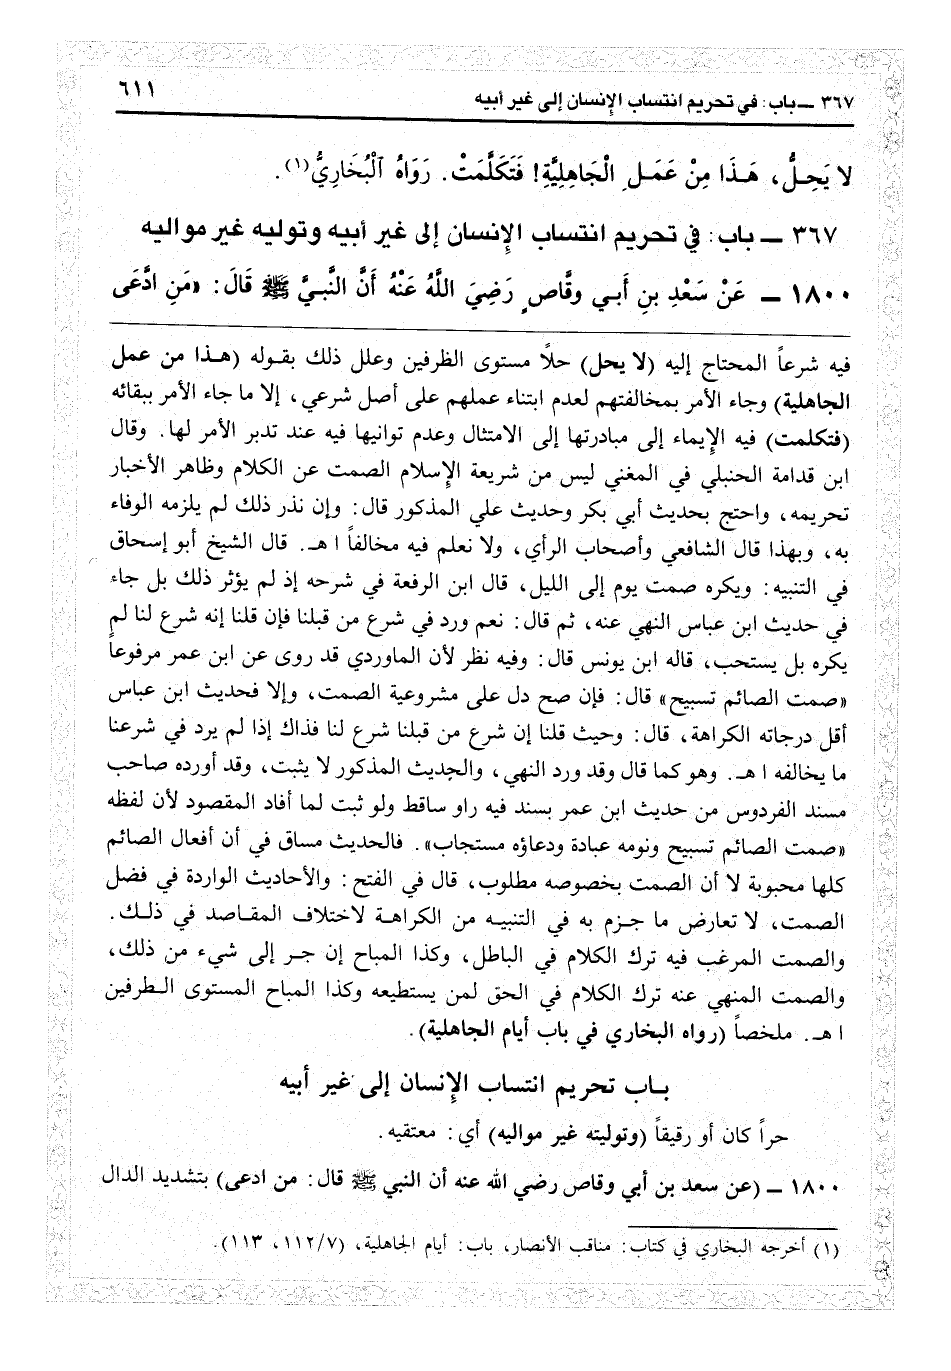 ٣٦٧ ــ باب: في تحريم انتساب الإنسان إلى غير أبيه
٦١١
لا يَحِلُّ، هَـذَا مِنْ عَمَـلِ الْجَاهِلِيَّةِ! فَتَكَلَّمَتْ. رَوَاهُ ٱلْبُخَارِيُّ(١).
٣٦٧ ــ باب: في تحريم انتساب الإنسان إلى غير أبيه وتوليه غير مواليه
١٨٠٠ ــ عَنْ سَعْدِ بنِ أَبـي وقَّاصٍ رَضِيَ اللَّهُ عَنْهُ أَنَّ النَّبـيَّ ﷺ قَالَ: «مَنِ ادَّعَى
فيه شرعاً المحتاج إليه (لا يحل) حلاً مستوى الظرفين وعلل ذلك بقوله (هـذا من عمل
الجاهلية) وجاء الأمر بمخالفتهم لعدم ابتناء عملهم على أصل شرعي، إلا ما جاء الأمر ببقائه
(فتكلمت) فيه الإيماء إلى مبادرتها إلى الامتثال وعدم توانيها فيه عند تدبر الأمر لها. وقال
ابن قدامة الحنبلي في المغني ليس من شريعة الإسلام الصمت عن الكلام وظاهر الأخبار
تحريمه، واحتج بحديث أبي بكر وحديث علي المذكور قال: وإن نذر ذلك لم يلزمه الوفاء
به، وبهذا قال الشافعي وأصحاب الرأي، ولا نعلم فيه مخالفاً ا هـ. قال الشيخ أبو إسحاق
في التنبيه: ويكره صمت يوم إلى الليل، قال ابن الرفعة في شرحه إذ لم يؤثر ذلك بل جاء
في حديث ابن عباس النهي عنه، ثم قال: نعم ورد في شرع من قبلنا فإن قلنا إنه شرع لنا لم
يكره بل يستحب، قاله ابن يونس قال: وفيه نظر لأن الماوردي قد روى عن ابن عمر مرفوعاً
«صمت الصائم تسبيح» قال: فإن صح دل على مشروعية الصمت، وإلا فحديث ابن عباس
أقل درجاته الكراهة، قال: وحيث قلنا إن شرع من قبلنا شرع لنا فذاك إذا لم يرد في شرعنا
ما يخالفه ا هـ. وهو كما قال وقد ورد النهي، والحديث المذكور لا يثبت، وقد أورده صاحب
مسند الفردوس من حديث ابن عمر بسند فيه راو ساقط ولو ثبت لما أفاد المقصود لأن لفظه
«صمت الصائم تسبيح ونومه عبادة ودعاؤه مستجاب». فالحديث مساق في أن أفعال الصائم
كلها محبوبة لا أن الصمت بخصوصه مطلوب، قال في الفتح: والأحاديث الواردة في فضل
الصمت، لا تعارض ما جـزم به في التنبيـه من الكراهـة لاختلاف المقـاصد في ذلـك.
والصمت المرغب فيه ترك الكلام في الباطل، وكذا المباح إن جـر إلى شيء من ذلك،
والصمت المنهي عنه ترك الكلام في الحق لمن يستطيعه وكذا المباح المستوى الـطرفين
ا هـ. ملخصاً (رواه البخاري في باب أيام الجاهلية).
بـاب تحريم انتساب الإنسان إلى غير أبيه
حراً كان أو رقيقاً (وتوليته غير مواليه) أي: معتقيه.
١٨٠٠ ــ (عن سعد بن أبي وقاص رضي الله عنه أن النبي ﷺ قال: من ادعى) بتشديد الدال
(١) أخرجه البخاري في كتاب: مناقب الأنصار، باب: أيام الجاهلية، (١١٢/٧، ١١٣).